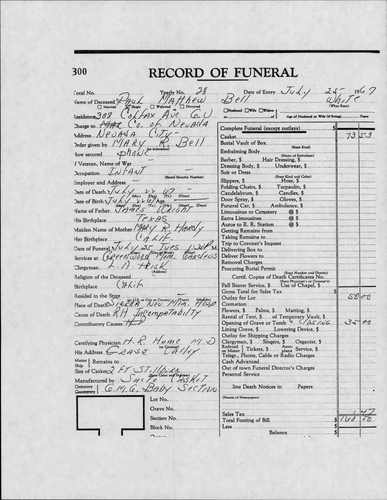 300
RECORD OF FUNERAL
Total No. Yearly No. 28 Date of Entry July 25- 1967
Name of Deceased Paul Matthew Bell White
(What Race)
Married Single Widowed Divorced Husband Wife Widow
Residence 308 Colfax Ave G.V. Age of Husband or Wife (If living) Years
Charge to Co. of Nevada
Address Nevada City-
Order given by Mary R. Bell
How secured phone
If Veteran, Name of War
Occupation Infant
(Social Security Number)
Employer and Address
Date of Death July 22 67
Date of Birth July 22 67 Age
Name of Father James Wright
His Birthplace Texas
Maiden Name of Mother Mary R. Hardy
Her Birthplace Calif
Date of Funeral July 25 Tues 1:30 P.M.
Services at Greenwood Mem. Gardens
Clergyman
Religion of the Deceased
Birthplace Calif
Resided in the State
Place of Death Sierra Nev Mem. Hosp
Cause of Death RH Incompatability
Contributory Causes
Certifying Physician H. R. Hume M.D
His Address Grass Valley
Remains to
Size of Casket 2 Ft
Manufactured by Casket
Cemetery G.M.G. Baby Section
Lot No.
Grave No.
Section No.
Block No.
Owner
Complete Funeral (except outlays) $
Casket 73 53
Burial Vault or Box
(State Kind)
Embalming Body
(Name of Embalmer)
Barber, $ Hair Dressing, $
Dressing Body, $ Underwear, $
Suit or Dress
(State Kind and Color)
Slippers, $ Hose, $
Folding Chairs, $ Tarpaulin, $
Candelabrum, $ Candles, $
Door Spray, $ Gloves, $
Funeral Car, $ Ambulance, $
Limousines to Cemetery @ $
Extra Limousines @ $
Autos to R. R. Station @ $
Getting Remains from
Taking Remains to
Trip to Coroner's Inquest
Delivering Box to
Deliver Flowers to
Removal Charges
Procuring Burial Permit
(State Number and District)
Certf. Copies of Death Certificates No.
Pall Bearer Service $ Use of Chapel, $
Gross Total for Sales Tax $
Outlay for Lot 50 00
Cremation
Flowers, $ Palms, $ Matting, $
Rental of Tent, $ of Temporary Vault, $
Opening of Grave or Tomb & Closing 35 00
Lining Grave, $ Lowering Device, $
Outlay for Shipping Charges
Clergymen, $ Singers, $ Organist, $
Railroad or Motor Tickets, $ Auto-plane Service $
Telegr., Phone, Cable or Radio Charges
Cash Advanced
Out of town Funeral Director's Charges
Personal Service
line Death Notices in Papers
(Names of Newspapers)
Sales Tax 1 47
Total Footing of Bill $ 160 00
Less
Balance $